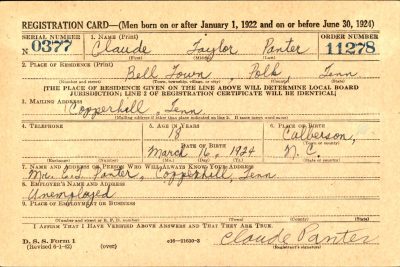 REGISTRATION CARD—(Men born on or after January 1, 1922 and on or before June 30, 1924)
SERIAL NUMBER 1. NAME (Print) ORDER NUMBER
N 0377 Claude Taylor Panter 11278
(First) (Middle) (Last)
2. PLACE OF RESIDENCE (Print)
Bell Town, Polk, Tenn
(Number and street) (Town, township, village, or city) (County) (State)
[THE PLACE OF RESIDENCE GIVEN ON THE LINE ABOVE WILL DETERMINE LOCAL BOARD
JURISDICTION; LINE 2 OF REGISTRATION CERTIFICATE WILL BE IDENTICAL]
3. MAILING ADDRESS
Copperhill, Tenn
(Mailing address if other than place indicated on line 2. If same insert word same)
4. TELEPHONE 5. AGE IN YEARS 6. PLACE OF BIRTH
18 Culberson,
DATE OF BIRTH
March 16, 1924 N. C.
(Exchange) (Number) (Mo.) (Day) (Yr.) (State or country)
7. NAME AND ADDRESS OF PERSON WHO WILL ALWAYS KNOW YOUR ADDRESS
Mr. Panter, Copperhill, Tenn.
8. EMPLOYER'S NAME AND ADDRESS
Unemployed
9. PLACE OF EMPLOYMENT OR BUSINESS
(Number and street or R. F. D. number) (Town) (County) (State)
I AFFIRM THAT I HAVE VERIFIED ABOVE ANSWERS AND THAT THEY ARE TRUE.
D. S. S. Form 1
(Revised 6-1-42) (over) Claude Panter
(Registrant's signature)